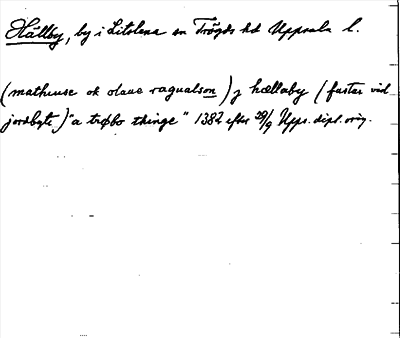 Hållby, by i Litslena sn Trögds hd Uppsala l.
(matheusе ok olaue ragualson) j hællaby (fastar vid
jordbyte) "a trøbo thinge" 1382 efter 29/9 Upps. dipl. orig.